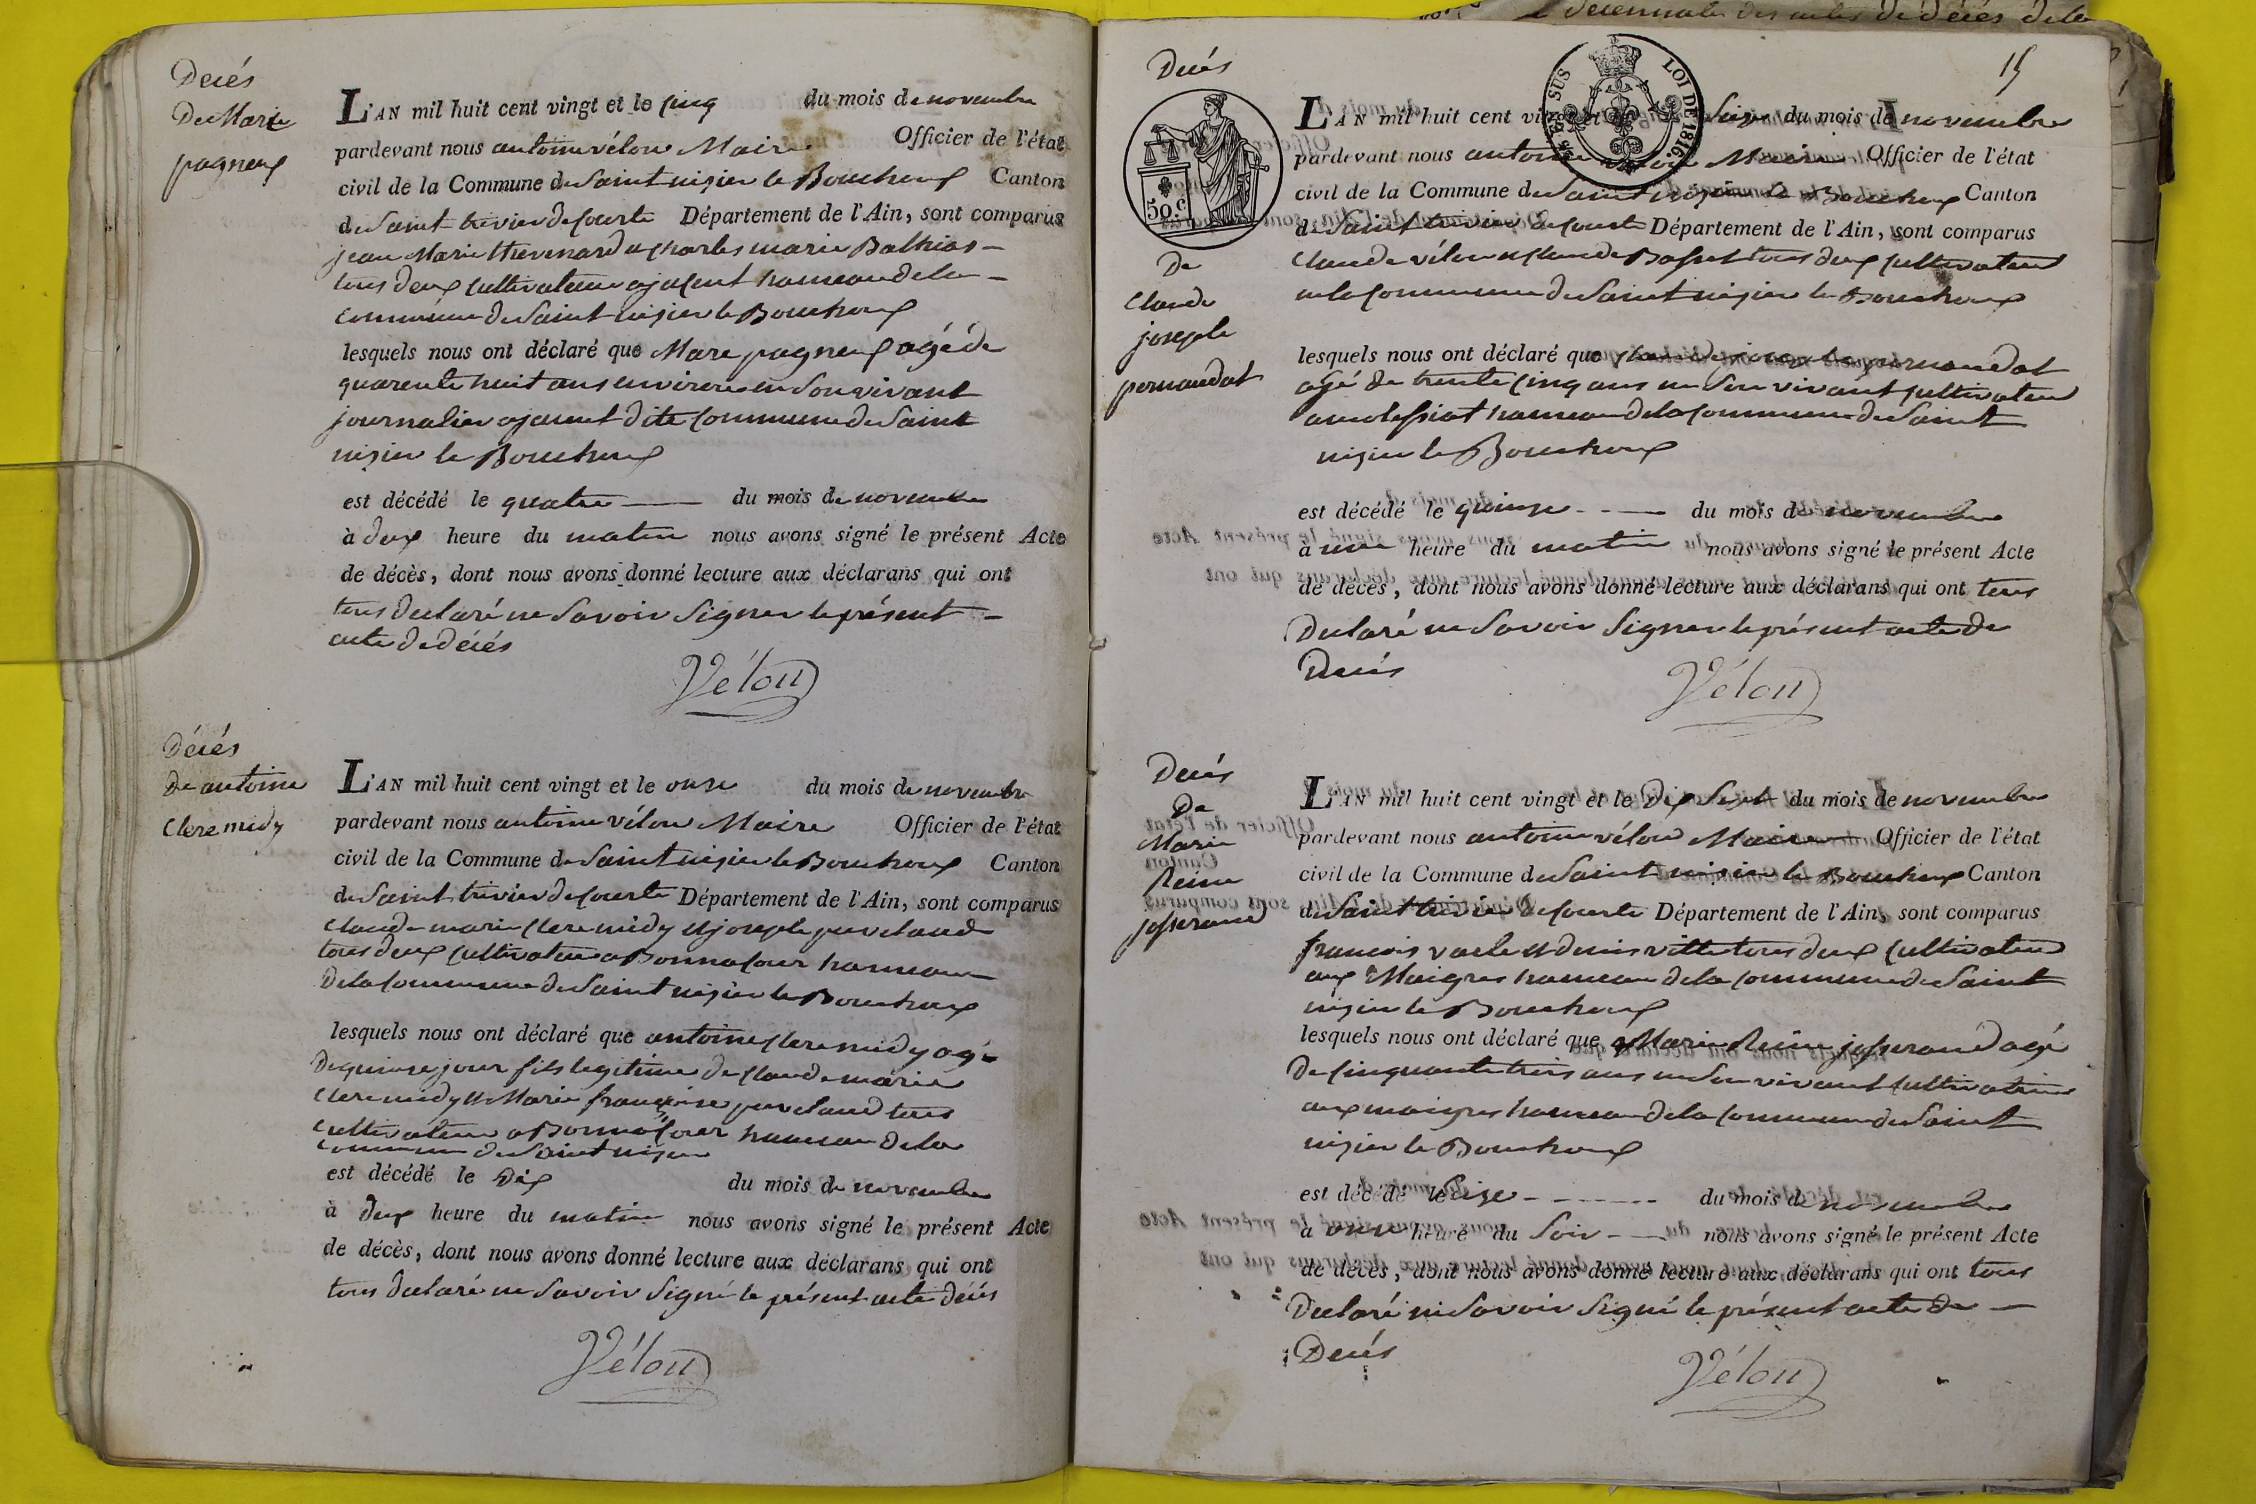 Decés
De Marie
pagneux
L'AN mil huit cent vingt et le cinq du mois de novembre
pardevant nous antoine vélon Maire Officier de l'état
civil de la Commune de Saint nizier le Bouchoux Canton
de Saint trivier de Courte Département de l'Ain, sont comparus
jean Marie thevenard et Charles marie Bathias
tous deux cultivateur ajacent hameau de la
commune de Saint nizier le Bouchoux
lesquels nous ont déclaré que Marie pagneux agé de
quarente huit ans environs en Son vivant
journalier ajacent dite Commune de Saint
nizier le Bouchoux
est décédé le quatre du mois de novembre
à deux heure du matin nous avons signé le présent Acte
de décès, dont nous avons donné lecture aux déclarans qui ont
tous declaré ne Savoir Signer le présent
acte de décés
Vélon
Décés
De antoine
Cleremidy
L'AN mil huit cent vingt et le onze du mois de novembre
pardevant nous antoine vélon Maire Officier de l'état
civil de la Commune de Saint nizier le Bouchoux Canton
de Saint trivier de Courte Département de l'Ain, sont comparus
Claude marie Cleremidy et joseph perveland
tous deux cultivateur a Bonnacour hameau
De la Commune de Saint nizier le Bouchoux
lesquels nous ont déclaré que antoine Cleremidy agé
De quinze jour fils legitime de Claude marie
Cleremidy et Marie françoise perveland tous
cultivateur a Bonnacour hameau de la
commune de Saint nizier
est décédé le Dix du mois de novembre
à deux heure du matin nous avons signé le présent Acte
de décès, dont nous avons donné lecture aux déclarans qui ont
tous declaré ne Savoir Signé le présent acte décés
Vélon
15
Decés
50. c
TIMBRE SUS LOI DE 1816.
De
Claude
joseph
pernaudat
L'AN mil huit cent vingt et le Seize du mois de novembre
pardevant nous antoine vélon Maire Officier de l'état
civil de la Commune de Saint nizier le Bouchoux Canton
de Saint trivier de Courte Département de l'Ain, sont comparus
Claude vélon et Claude Bassel tous deux cultivateur
en la Commune de Saint nizier le Bouchoux
lesquels nous ont déclaré que Claude joseph pernaudat
agé de trente cinq ans en Son vivant cultivateur
hameau de la Commune de Saint
nizier le Bouchoux
est décédé le quinze du mois de novembre
à une heure du matin nous avons signé le présent Acte
de décès, dont nous avons donné lecture aux déclarans qui ont tous
Declaré ne Savoir Signer le présent acte de
Decés
Vélon
Decés
De
Marie
Reine
josserand
L'AN mil huit cent vingt et le Dix Sept du mois de novembre
pardevant nous antoine vélon Maire Officier de l'état
civil de la Commune de Saint nizier le Bouchoux Canton
de Saint trivier de Courte Département de l'Ain, sont comparus
francois varle et denis ville tous deux cultivateur
aux Maigres hameau de la Commune de Saint
nizier le Bouchoux
lesquels nous ont déclaré que Marie Reine josserand agé
De Cinquante trois ans en Son vivant cultivatrice
aux maigres hameau de la Commune de Saint
nizier le Bouchoux
est décédé le Seize du mois de novembre
à onze heure du Soir nous avons signé le présent Acte
de décès, dont nous avons donné lecture aux déclarans qui ont tous
Declaré ne Savoir Signé le présent acte de
Decés
Vélon